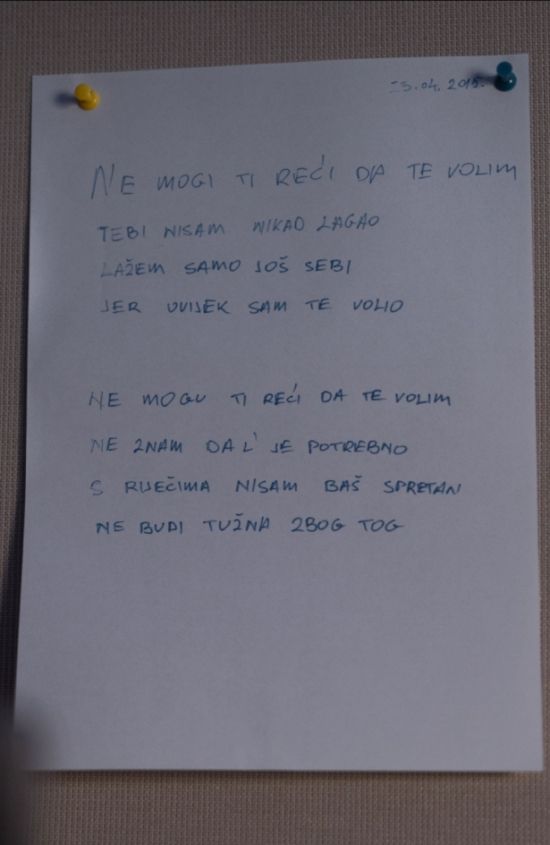 23.04.2015.
NE MOGI TI REĆI DA TE VOLIM
TEBI NISAM NIKAD LAGAO
LAŽEM SAMO JOŠ SEBI
JER UVIJEK SAM TE VOLIO
NE MOGU TI REĆI DA TE VOLIM
NE ZNAM DA L' JE POTREBNO
S RIJEČIMA NISAM BAŠ SPRETAN
NE BUDI TUŽNA ZBOG TOG